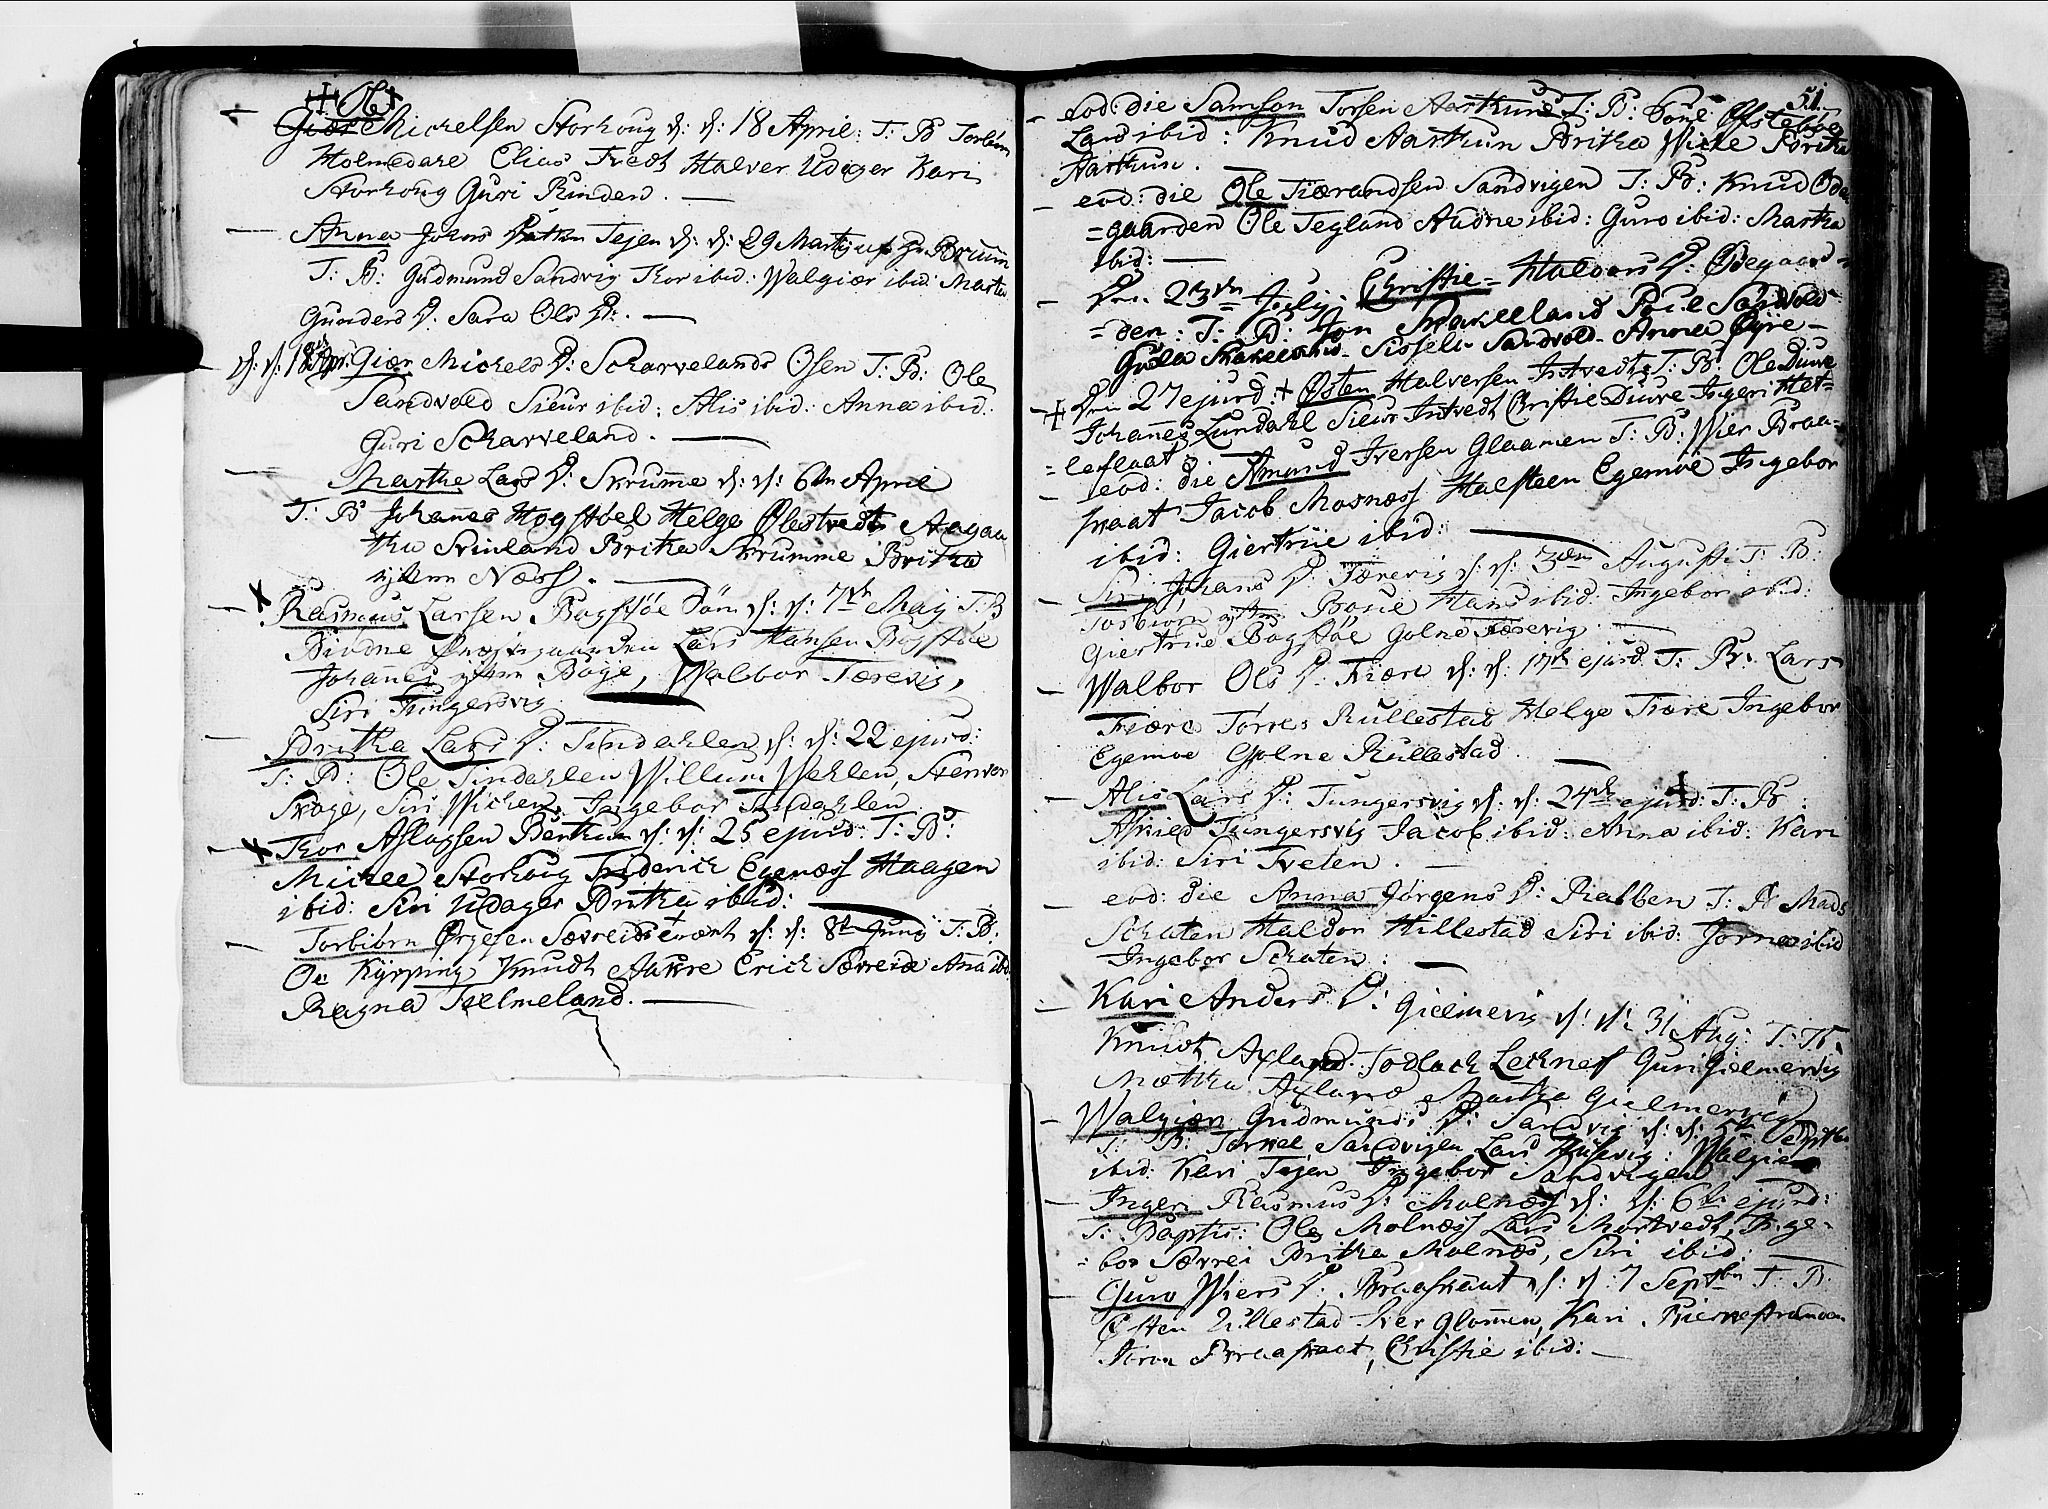 Ole
Giær Mickelsen Storhoug d: d: 18 April: T: B Torbiørn
Holmedare Elias Tvedt Halver Udager Kari
Storhoug Guri Rinden.
Anna Johns Tejen d: d: 29 Martij
T: B: Gudmund Sandvig Thor ibid: Walgiær ibid: Marta
Gunders D: Sara Ols D:.
d: d: 18 Apr: Giær Mickels D: Scharvelands Osen T: B: Ole
Sandvold Sieur ibid: Alis ibid: Anna ibid:
Guri Scharveland.
Marthe Lars D: Skrumme d: d: 6th April
T: B Johanes Hogstøel Helge Ølestvedt Aagaa
tha Svinland Brita Skrumme Britha
Næss.
Rasmus Larsen Bogstøe d: d: 7th Maij T: B
Lars Hansen Bogstøe
Johannes Boge, Walbor Tærevig,
Siri Tungersvig
Britha Lars D: Tindahlen d: d: 22 ejusd:
T: B: Ole Tindahlen Willum Wehlen, Stenvor
Skoge, Siri Wichen, Ingebor Tindahlen
Thor Aslagsen Berhun d: d: 25 ejusd: T: B:
Mickel Storhoug Friderich Egenæss Haagen
ibid: Siri Udager Britha ibid:
Torbiørn Ørgesen d: d: 8th Junij T: B:
Ole Kypping Knudt Aakre Erich Særreid Anna ibd
Ragna Tvelmeland.
51.
eod: die Samson Torsen Aarthun T: B: Poul Østebøe
Lars ibid: Knud Aarthun Britha Wiche Britha
Aarthun.
eod: die Ole Tiærandsen Sandvigen T: B: Knud Øde
=gaarden Ole Tegland Audne ibid: Guro ibid: Martha
ibid:
Den 23de Julij Christie Haldors D: Ødegaard
=den: T: B: Jon Skakeland Poul Sandvold
Gøla Skakeland Sisseli Sandvold Anna Øyre
Den 27 ejusd: Østen Halversen Intvedt T: B: Ole Duwe
Johannes Lundahl Sieur Intvedt Christie Duwe Ingeri Het=
=leflaat
eod: die Amund Iversen Glaamen T: B: Wier Braa=
skaat Jacob Mosnæss Halsteen Egemoe Ingebor
ibid: Giertrue ibid:
Siri Johans D: Tærevig d: d: 3den August: T: B:
Torbiørn Boge Hans ibid: Ingebor ibid:
Giertrue Bogstøe Golne Tærevig.
Walbor Ols D: Fiære d: d: 17th ejusd T: B: Lars
Fiære Torres Rullestad Helge Fiære Ingebor
Egemoe Golne Rullestad
Alis Lars D: Tungersvig d: d: 24th ejusd: T: B
Tungersvig Jacob ibid: Anna ibid: Kari
ibid: Siri Tveten.
eod: die Anna Jørgens D: Rabben T: B Mads
Schaten Haldor Hillestad Siri ibid: Jorna ibid
Ingebor Schaten:
Kari Anders D: Gielmevig d: d: 31 Aug: T: B.
Knudt Axland Todlach Lechnes Guri Gielmervig
Mættha Axland Martha Gielmervig
Walgiær Gudmunds D: Sandvig d: d: 5th Septbr
T: B: Torkel Sandvigen Lars Husevig: Walgiær
ibid: Kari Tejen Ingebor Sandvigen
Ingeri Rasmus D: Molnæss d: d: 6th ejusd:
T: Baptis: Ole Molnæss Lars Mortvedt, Inge=
=bor Særrei Britha Molnæs, Siri ibid:
Guro Wiers D: Braaskaat d: d: 7 Septbr T: B:
Østen Lillestad Iver Glomen, Kari
Toron Braaskaat, Christie ibid: